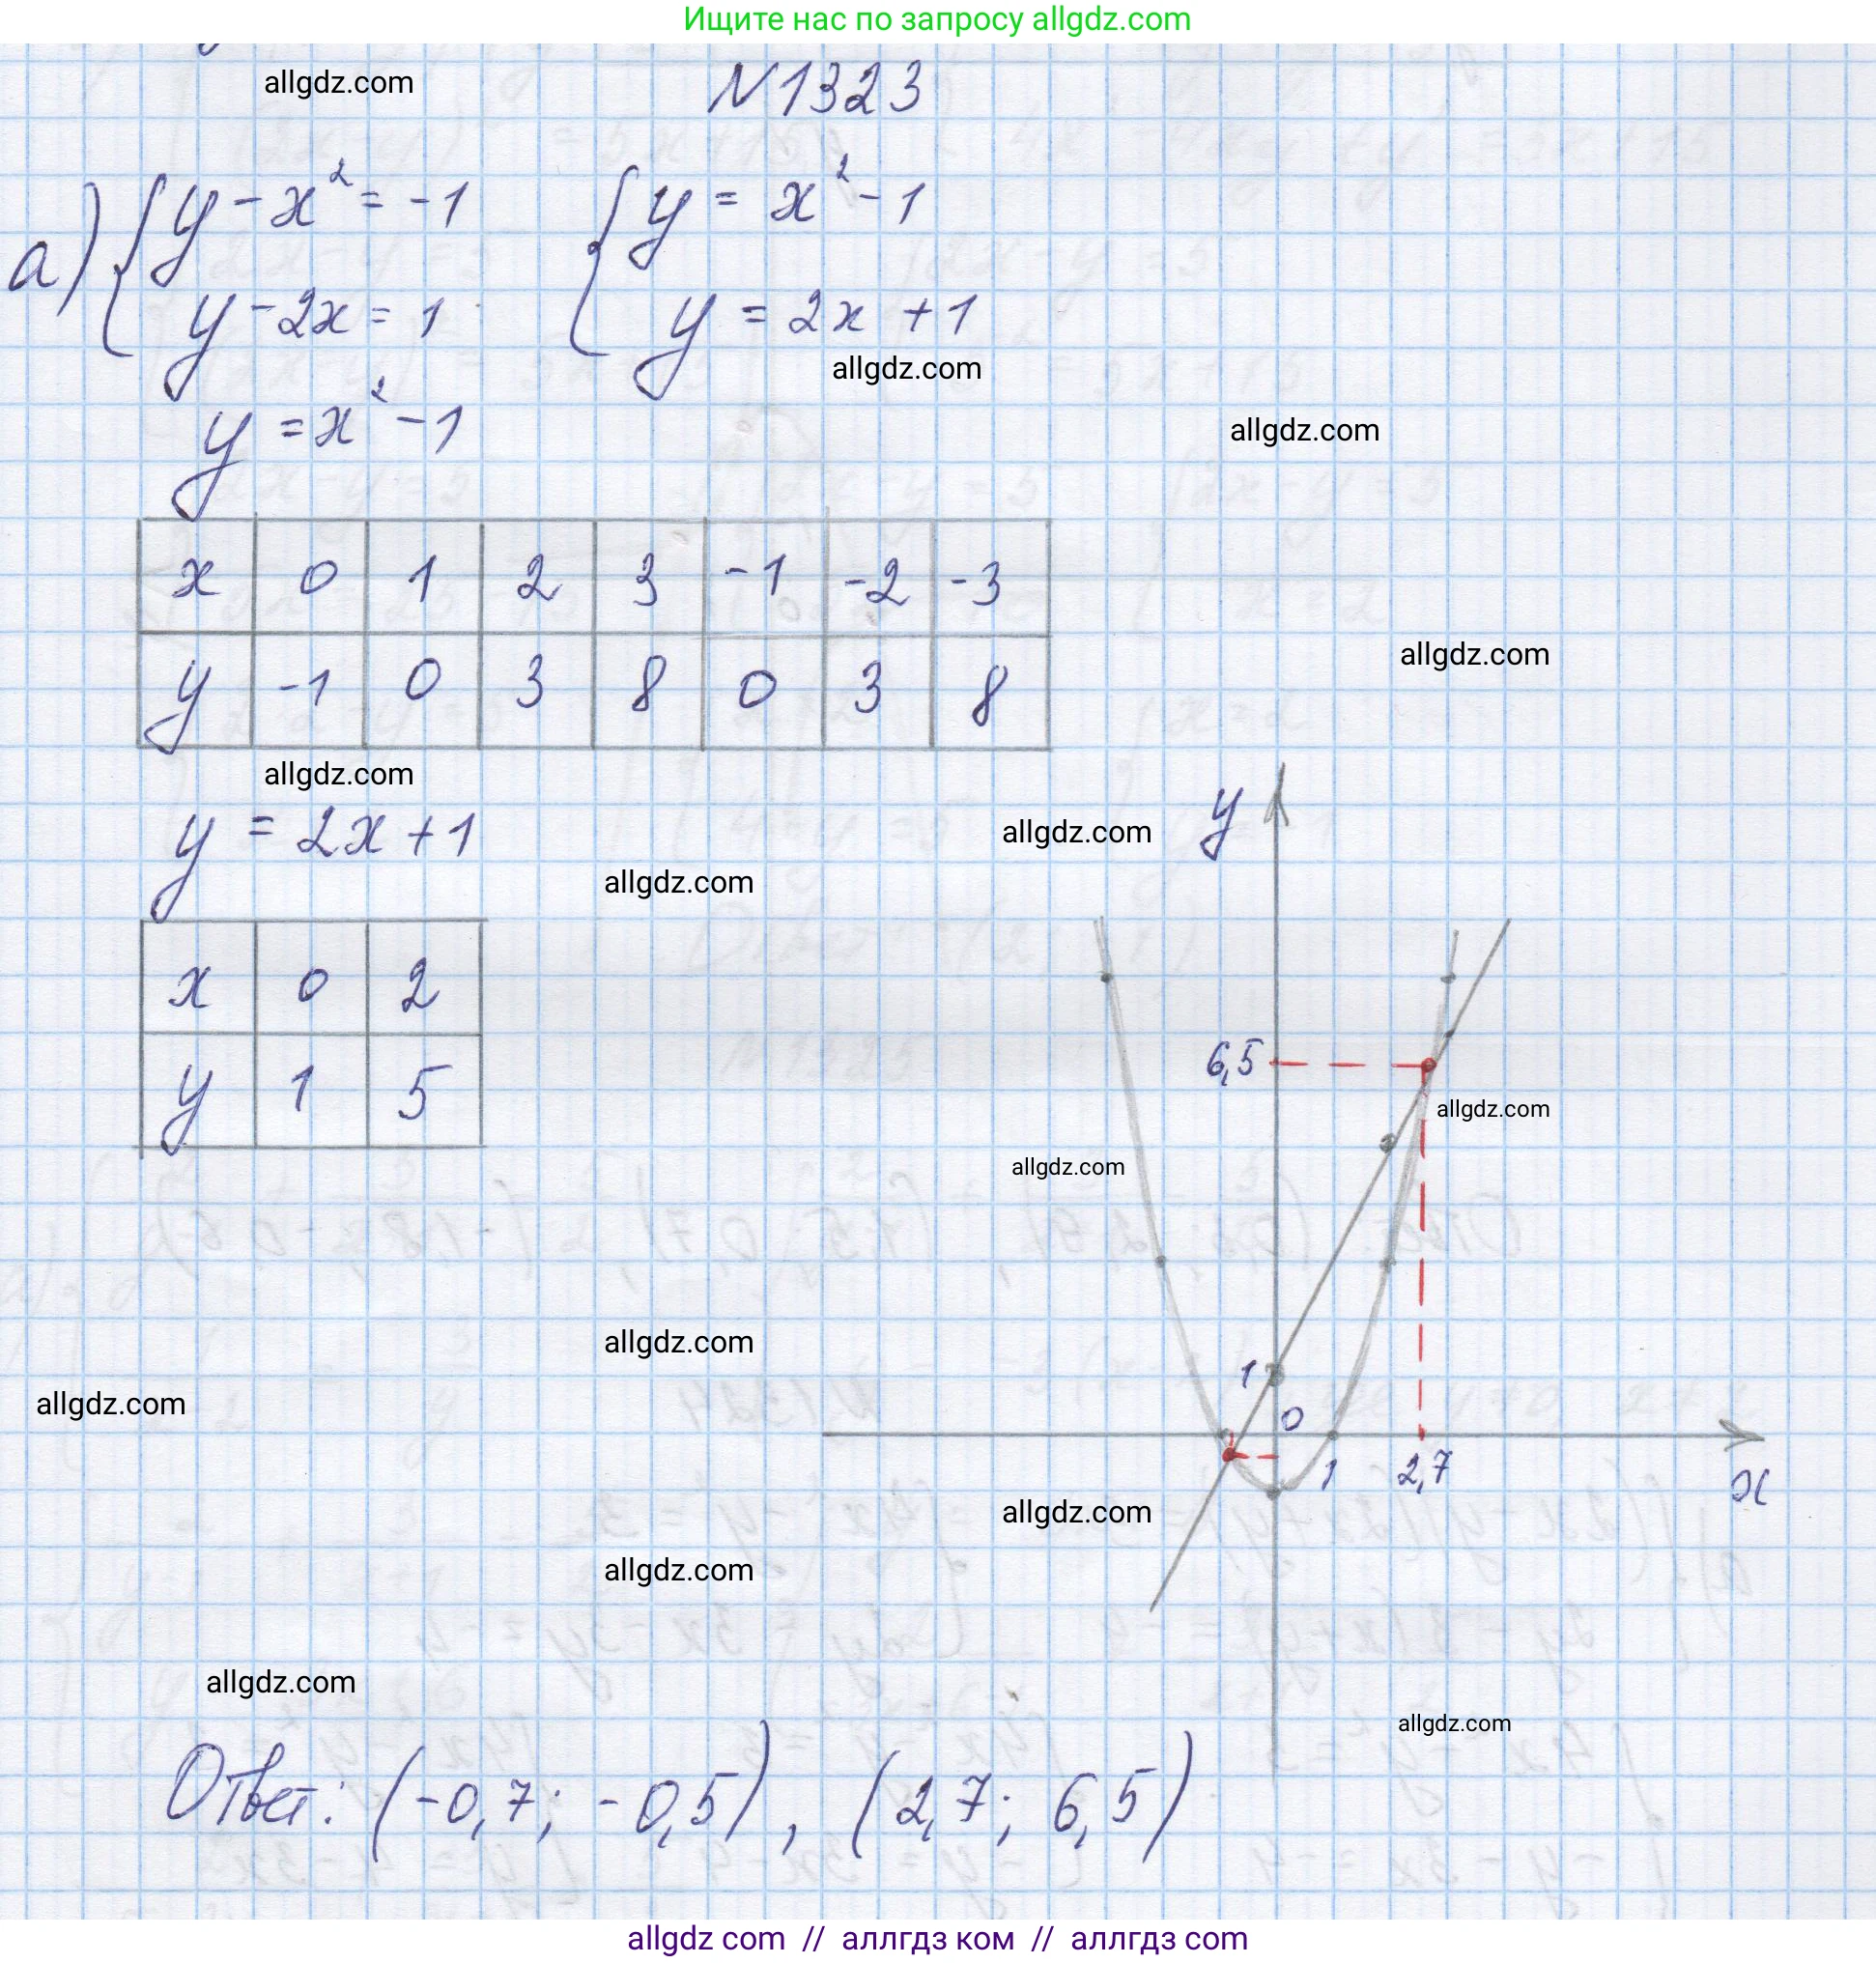 Ищите нас по запросу allgdz.com
allgdz.com
N1323
а) { y - x² = -1 { y = x² - 1
y - 2x = 1 y = 2x + 1
allgdz.com
y = x² - 1
allgdz.com
x 0 1 2 3 -1 -2 -3
allgdz.com
y -1 0 3 8 0 3 8
allgdz.com
y = 2x + 1
y
allgdz.com
allgdz.com
x 0 2
y 1 5
6,5
allgdz.com
allgdz.com
allgdz.com
1
allgdz.com
0
1
2,7
x
allgdz.com
allgdz.com
allgdz.com
allgdz.com
Ответ: (-0,7; -0,5), (2,7; 6,5)
allgdz com // аллгдз ком // аллгдз com